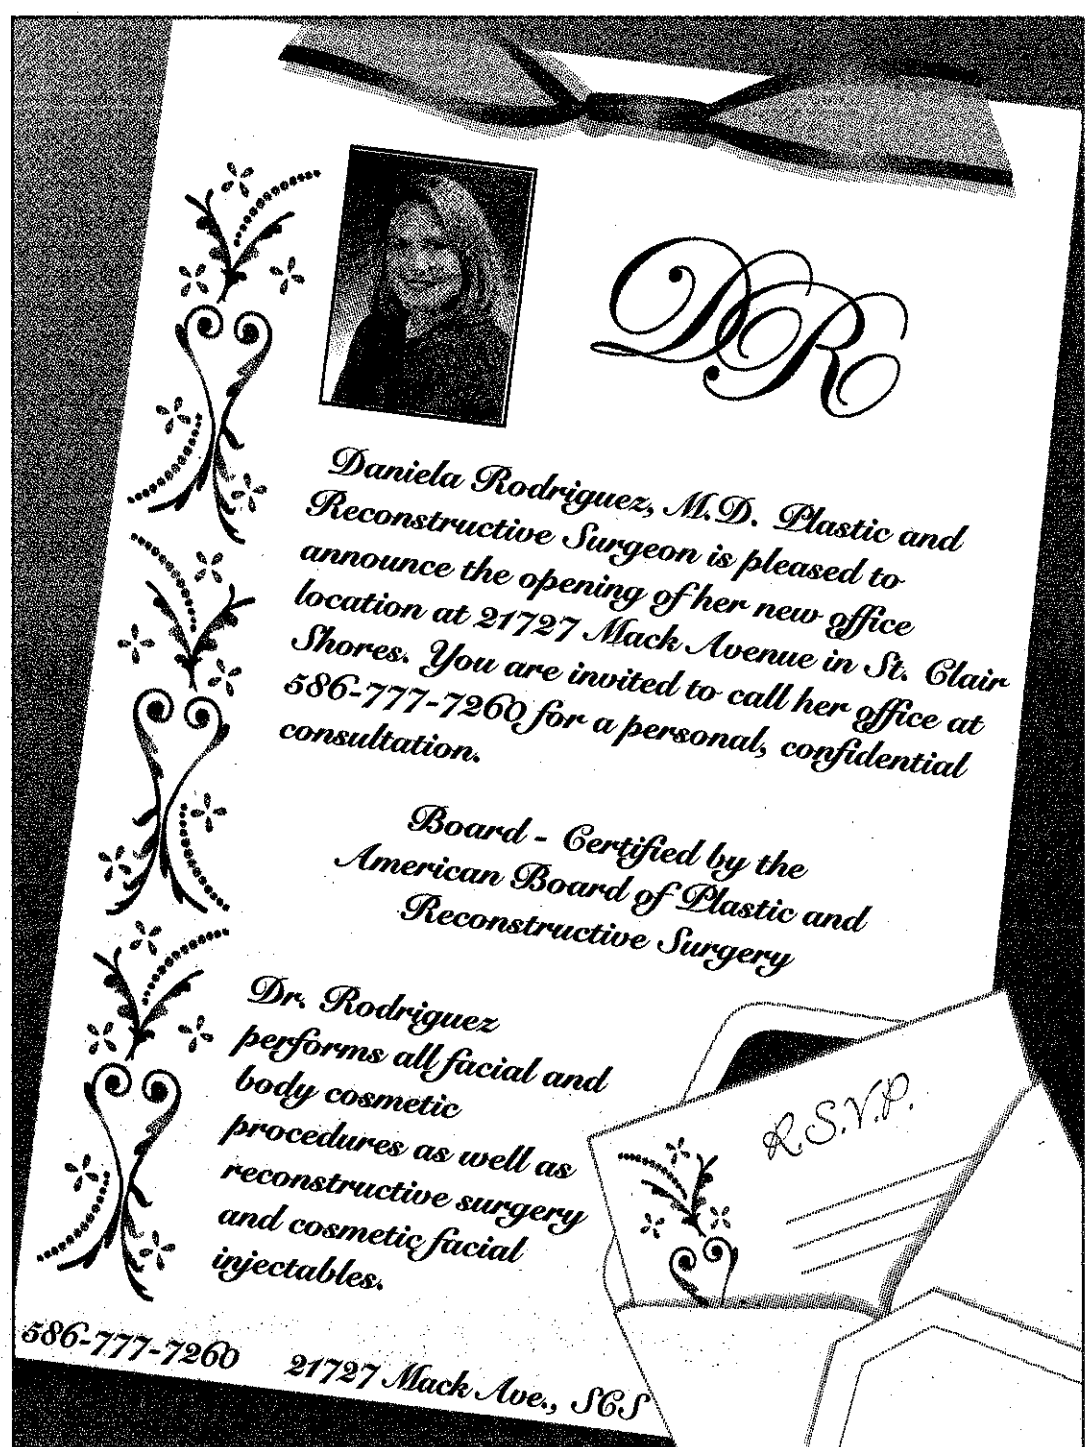 DR
Daniela Rodriguez, M.D. Plastic and
Reconstructive Surgeon is pleased to
announce the opening of her new office
location at 21727 Mack Avenue in St. Clair
Shores. You are invited to call her office at
586-777-7260 for a personal, confidential
consultation.
Board - Certified by the
American Board of Plastic and
Reconstructive Surgery
Dr. Rodriguez
performs all facial and
body cosmetic
procedures as well as
reconstructive surgery
and cosmetic facial
injectables.
R.S.V.P.
586-777-7260 21727 Mack Ave., SCS